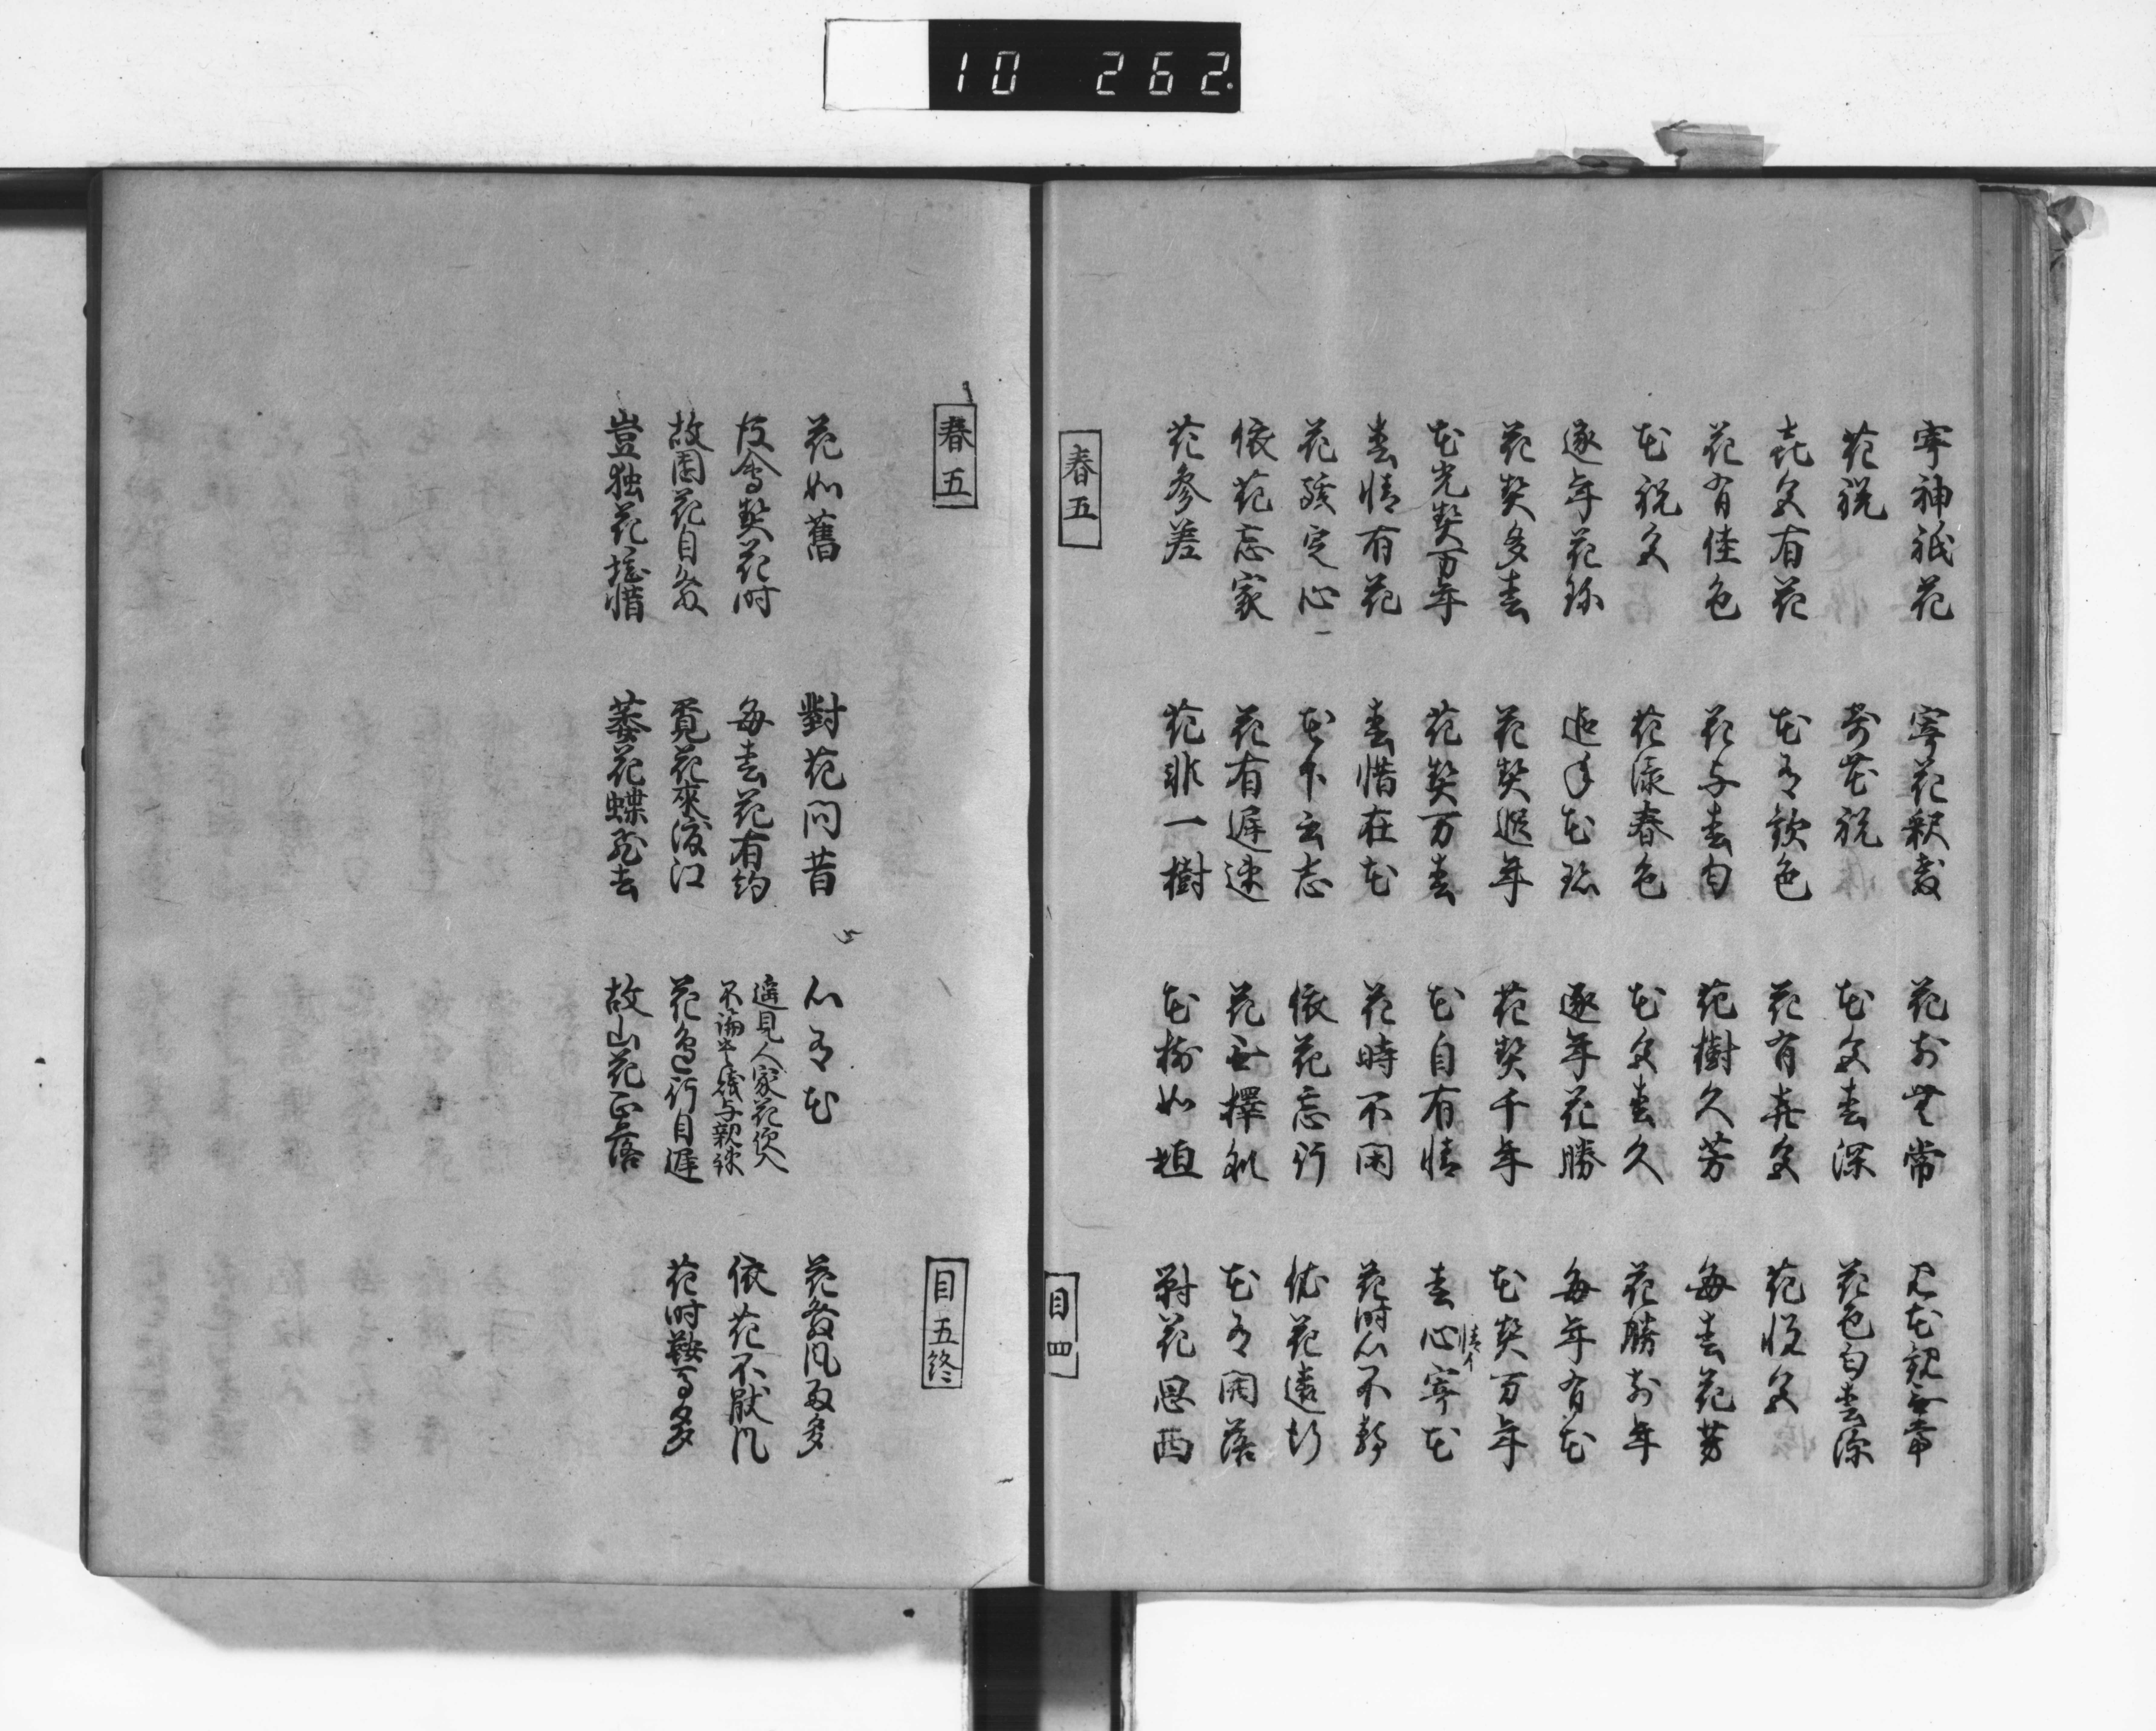 10 262
寄神祇花 寄花釈教 花前無常 見花観無常
花祝 寄花祝 花友春深 花色匂春深
花友有花 花有歓色 花有喜友 花悦友
花有佳色 花与春匂 花樹久芳 毎春花芳
花祝友 花添春色 花友春久 花勝前年
逐年花珍 追年花珍 逐年花勝 毎年有花
花契多春 花契遐年 花契千年 花契万年
花光契万年 花契万春 花自有情 春心寄花
春情有花 春惜在花 花時不閑 花時心不静
花詠定心 花下忘 依花忘行 依花遠行
依花忘家 花有遅速 花無択 花有開落
花参差 花非一樹 花樹如植 対花思西
春五
目四
春五
目五終
花如舊 對花問昔 心有花 花發風雨多
故會契花時 毎春花有約 遥見人家花便入 不論貴賤与親疎 依花不厭風
故園花自發 覓花來渡江 花邉行自遅 花時鞍馬多
豈独花堪惜 蕚花蝶飛去 故山花正落